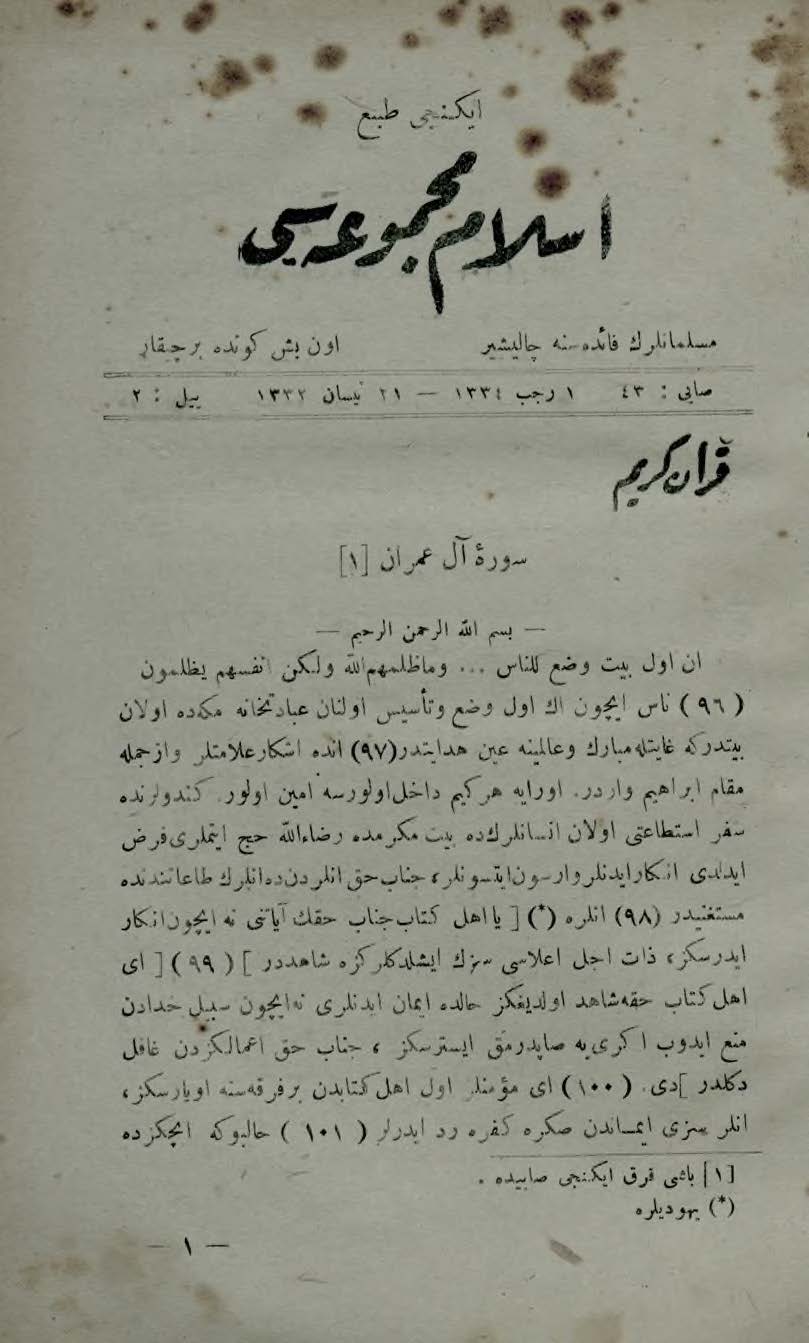 ایکنجی طبع
اسلام مجموعه‌سی
مسلمانلرك فائده‌سنه چالیشیر اون بش كونده بر چیقار
صایی : ٤٣ ١ رجب ١٣٣٤ — ٢١ نیسان ١٣٣٢ ییل : ٢
قرآن کریم
سورهٔ آل عمران [١]
— بسم الله الرحمن الرحیم —
ان اول بیت وضع للناس ... وماظلمهم‌الله ولـکن انفسهم یظلمون
( ٩٦ ) ناس ایچون اك اول وضع وتأسیس اولنان عبادتخانه مکه‌ده اولان
بیتدرکه غایتله‌مبارك وعالمینه عین هدایتدر(٩٧) انده اشکارعلامتلر وازجمله
مقام ابراهیم واردر. اورایه هرکیم داخل‌اولورسه امین اولور. کندولرنده
سفر استطاعتی اولان انسانلرك‌ده بیت مکرمده رضاءالله حج ایتملری‌فرض
ایدلدی انـکارایدنلروارسون‌ایتسونلر، جناب‌حق انلردن‌ده‌انلرك طاعاتندنده
مستغنیدر (٩٨) انلره (*) [ یااهل کتاب‌جناب حقك آیاتنی نه ایچون‌انکار
ایدرسکز، ذات اجل اعلاسی سزك ایشلدکلرکزه شاهددر ] ( ٩٩ ) [ ای
اهل کتاب حقه‌شاهد اولدیغکز حالده ایمان ایدنلری نه‌ایچون سبیل خدادن
منع ایدوب اکری‌یه صاپدرمق ایسترسکز ، جناب حق اعمالکزدن غافل
دکلدر ]دی. (١٠٠) ای مؤمنلر اول اهل‌کتابدن برفرقه‌سنه اویارسکز،
انلر سزی ایمـاندن صکره کفره رد ایدرلر ( ١٠١ ) حالبوکه ایچکزده
[١] باشی قرق ایکنجی صاییده .
(*) یهودیلره
— ١ —